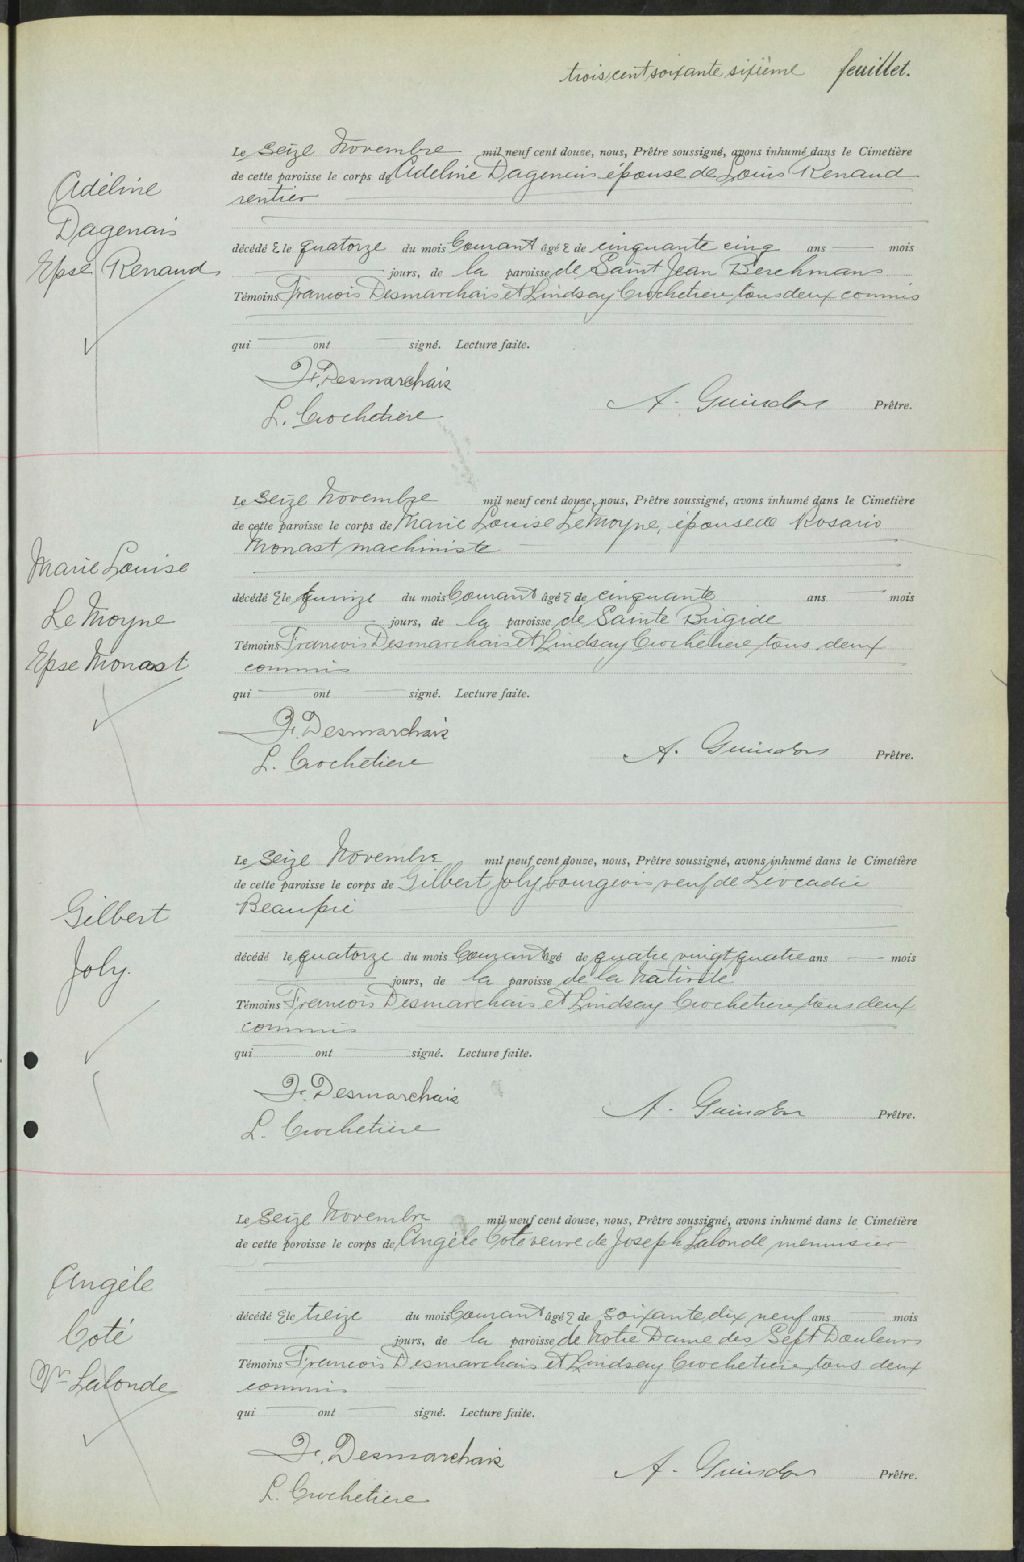 trois cent soixante sixième feuillet.
Adéline
Dagenais
Epse Renaud
Le seize Novembre mil neuf cent douze, nous, Prêtre soussigné, avons inhumé dans le Cimetière
de cette paroisse le corps de Adeline Dagenais épouse de Louis Renaud
rentier
décédé e le quatorze du mois Courant âgé e de cinquante cinq ans — mois
— jours, de la paroisse de Saint Jean Berchmans
Témoins Francois Desmarchais et Lindsay Crochetiere tous deux commis
qui — ont — signé. Lecture faite.
F. Desmarchais
L. Crochetiere
A. Guindon Prêtre.
Marie Louise
Le Moyne
Epse Monast
Le seize Novembre mil neuf cent douze, nous, Prêtre soussigné, avons inhumé dans le Cimetière
de cette paroisse le corps de Marie Louise LeMoyne, épouse de Rosario
Monast machiniste
décédé e le quinze du mois Courant âgé e de cinquante ans — mois
— jours, de la paroisse de Sainte Brigide
Témoins Francois Desmarchais et Lindsay Crochetiere tous deux
commis
qui — ont — signé. Lecture faite.
F. Desmarchais
L. Crochetiere
A. Guindon Prêtre.
Gilbert
Joly.
Le seize Novembre mil neuf cent douze, nous, Prêtre soussigné, avons inhumé dans le Cimetière
de cette paroisse le corps de Gilbert Joly bourgeois veuf de Léocadie
Beaupré
décédé le quatorze du mois Courant âgé de quatre vingt quatre ans — mois
— jours, de la paroisse de la Nativité
Témoins Francois Desmarchais et Lindsay Crochetiere tous deux
commis
qui — ont — signé. Lecture faite.
F. Desmarchais
L. Crochetiere
A. Guindon Prêtre.
Angèle
Coté
Vve Lalonde
Le seize Novembre mil neuf cent douze, nous, Prêtre soussigné, avons inhumé dans le Cimetière
de cette paroisse le corps de Angèle Coté veuve de Joseph Lalonde menuisier
décédé e le treize du mois Courant âgé e de soixante dix neuf ans — mois
— jours, de la paroisse de Notre Dame des Sept Douleurs
Témoins Francois Desmarchais et Lindsay Crochetiere tous deux
commis
qui — ont — signé. Lecture faite.
F. Desmarchais
L. Crochetiere
A. Guindon Prêtre.